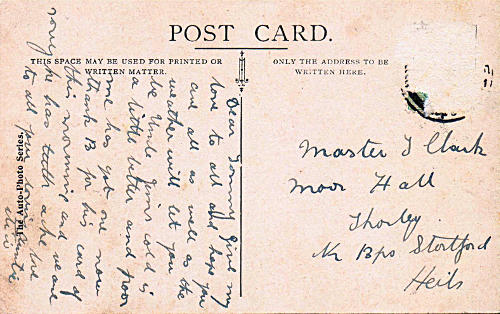 POST CARD.
THIS SPACE MAY BE USED FOR PRINTED OR
WRITTEN MATTER.
ONLY THE ADDRESS TO BE
WRITTEN HERE.
The Auto-Photo Series.
Dear Tommy Give my
love to all and hope you
are all as well as the
weather will let you
be Uncle Jim's cold is
a little better and poor
me has got one now
thank B for his card of
this morning and
sorry he has tooth ache we are
to all your loving Auntie
Master T Clark
Moor Hall
Thorley
Nr Bps Stortford
Herts